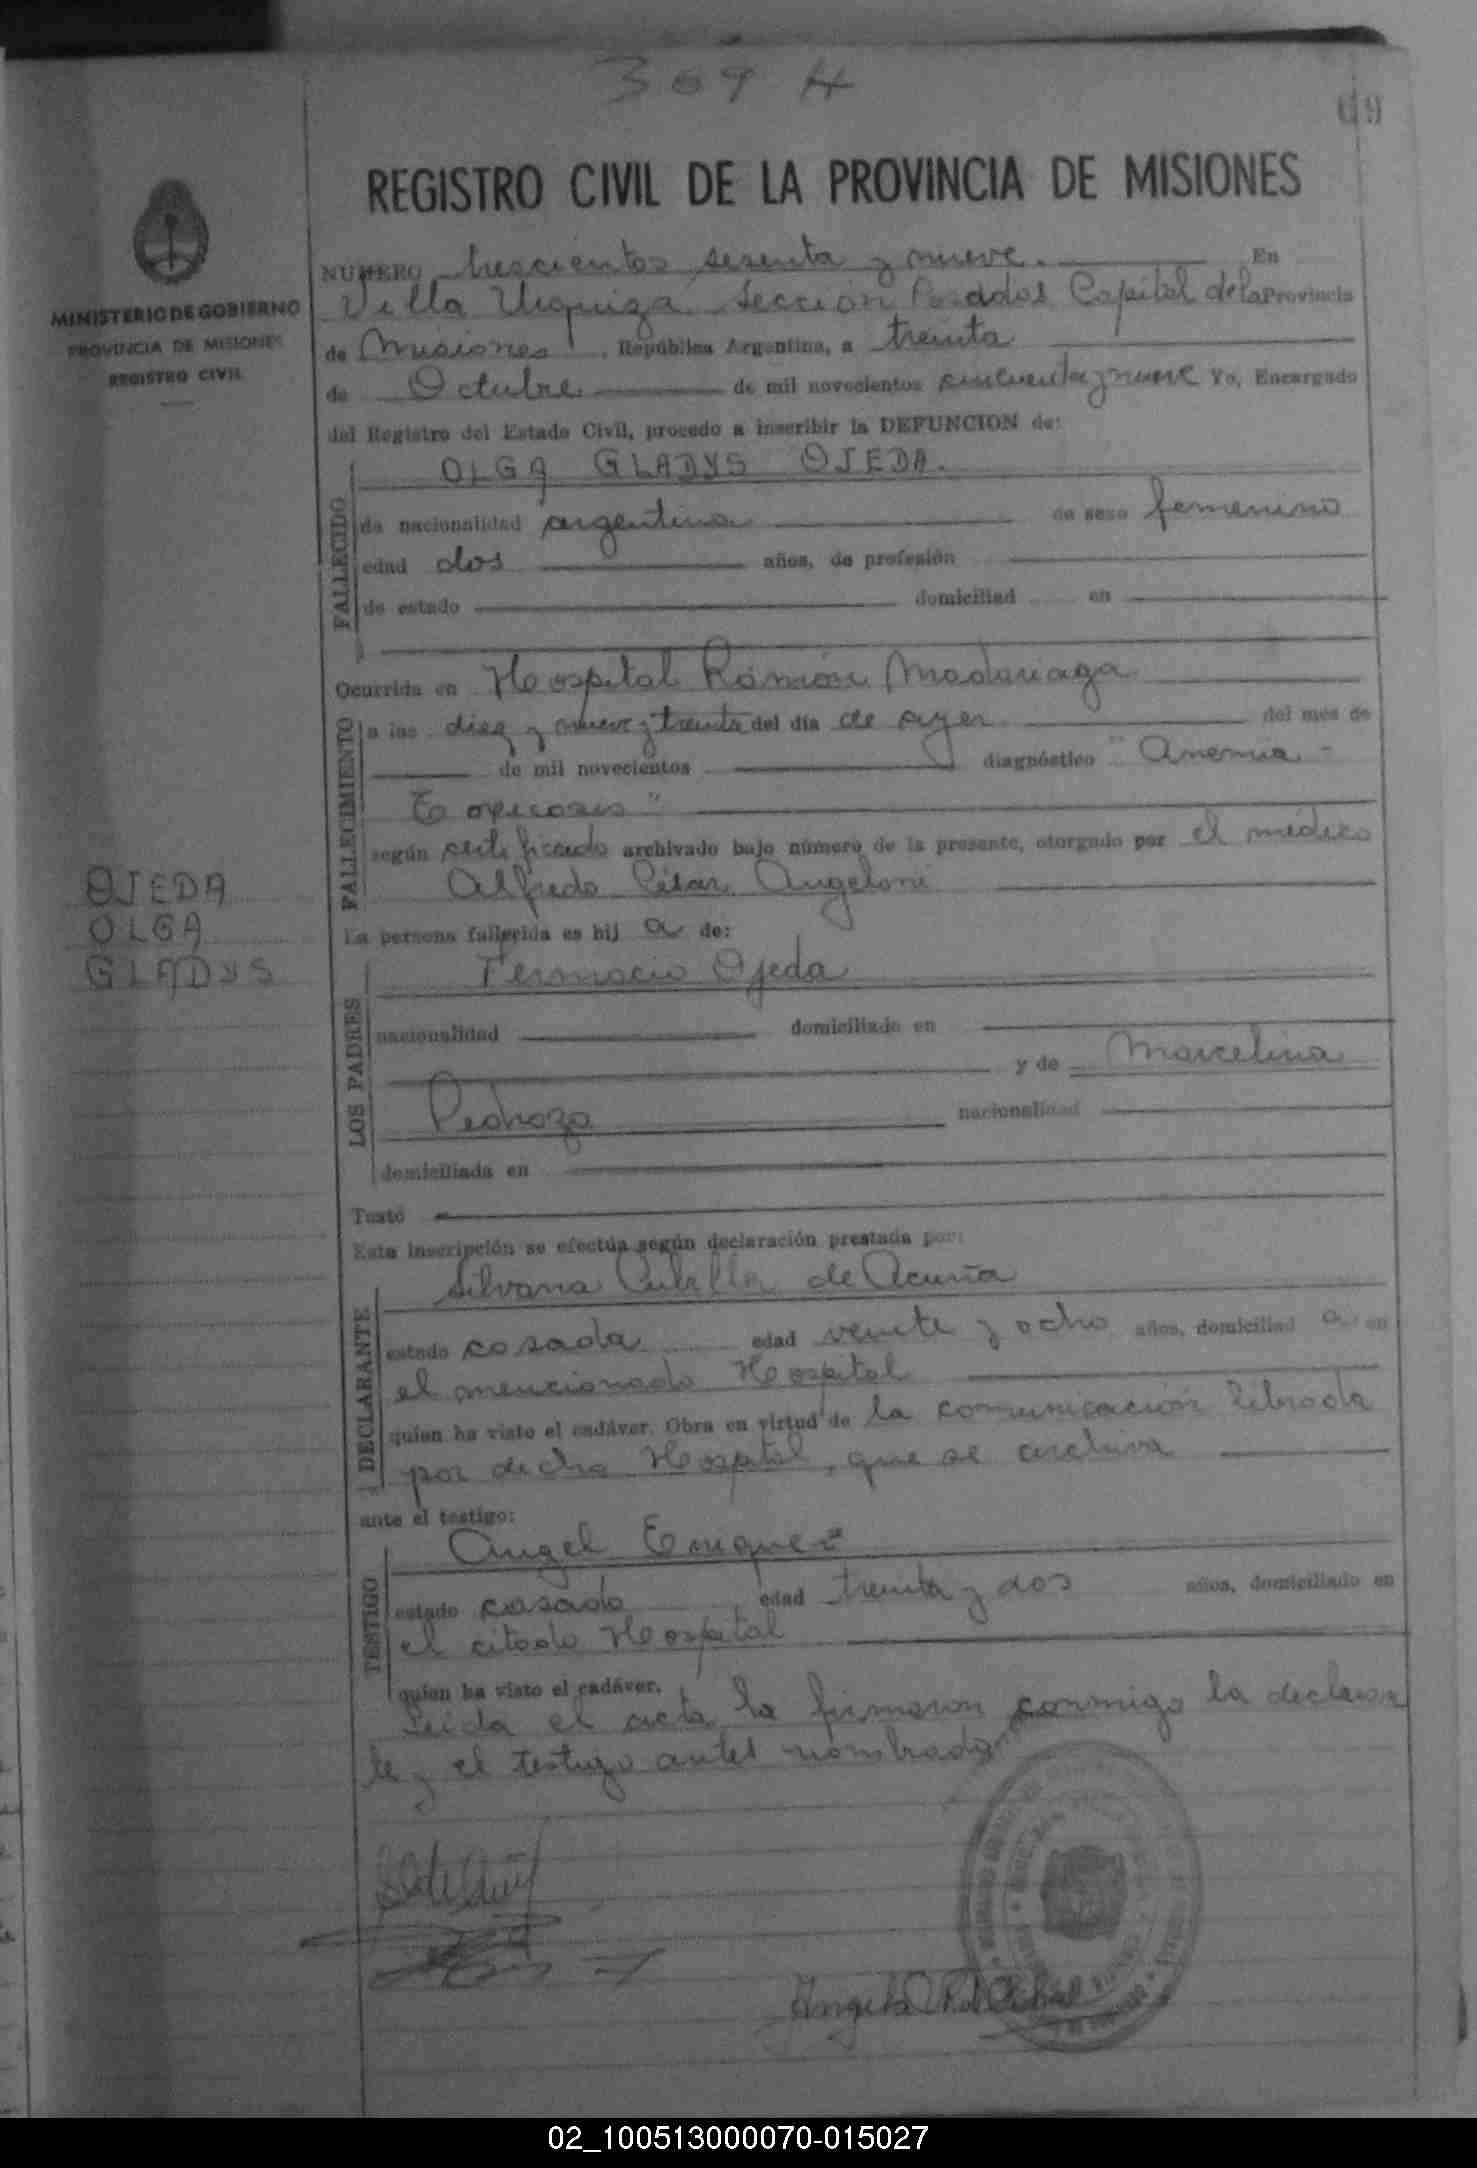 369 H
69
REGISTRO CIVIL DE LA PROVINCIA DE MISIONES
MINISTERIO DE GOBIERNO
PROVINCIA DE MISIONES
REGISTRO CIVIL
NUMERO trescientos sesenta y nueve. En
Villa Urquiza Sección Posadas Capital de la Provincia
de Misiones, República Argentina, a treinta
de Octubre de mil novecientos cincuenta y nueve Yo, Encargado
del Registro del Estado Civil, procedo a inscribir la DEFUNCION de:
FALLECIDO
OLGA GLADYS OJEDA.
de nacionalidad argentina de sexo femenino
edad dos años, de profesión
de estado domiciliad en
FALLECIMIENTO
Ocurrida en Hospital Ramón Madariaga
a las diez y nueve y treinta del día de ayer del mes de
de mil novecientos diagnóstico "Anemia -
según certificado archivado bajo número de la presente, otorgado por el médico
Alfredo César Angeloni
OJEDA
OLGA
GLADYS
La persona fallecida es hij a de:
LOS PADRES
Ojeda
nacionalidad domiciliado en
y de Marcelina
Pedrozo
nacionalidad
domiciliada en
Testó
Esta inscripción se efectúa según declaración prestada por:
DECLARANTE
Silvana Cubilla de Acuña
estado casada edad veinte y ocho años, domiciliad a en
el mencionado Hospital
quien ha visto el cadáver. Obra en virtud de la comunicación librada
por dicho Hospital, que se archiva
ante el testigo:
TESTIGO
Angel Enriquez
estado casado edad treinta y dos años, domiciliado en
el citado Hospital
quien ha visto el cadáver.
Leida el acta la firmaron conmigo la declaran
te y el testigo antes nombrados
02_100513000070-015027